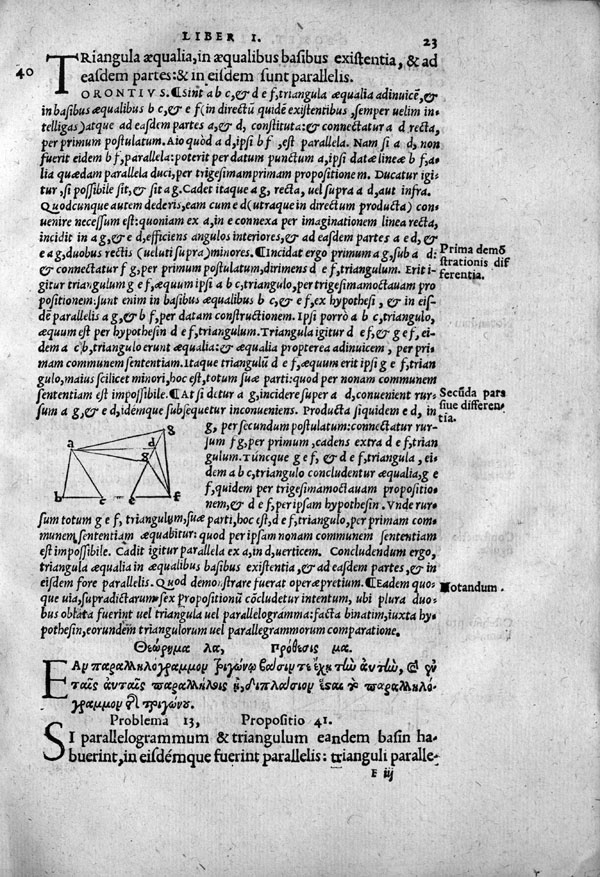 LIBER I.
23
TRiangula æqualia, in æqualibus basibus existentia, & ad
40
easdem partes: & in eisdem sunt parallelis.
ORONTIVS. ¶Sint a b c, & d e f, triangula æqualia adinuicē, &
in basibus æqualibus b c, & e f (in directū quidē existentibus, semper uelim in-
telligas) atque ad easdem partes a, & d, constituta: & connectatur a d recta,
per primum postulatum. Aio quòd a d, ipsi b f, est parallela. Nam si a d, non
fuerit eidem b f, parallela: poterit per datum punctum a, ipsi datæ lineæ b f, a-
lia quædam parallela duci, per trigesimamprimam propositionem. Ducatur igi-
tur, si possibile sit, & sit a g. Cadet itaque a g, recta, uel supra a d, aut infra.
Quodcunque autem dederis, eam cum e d (utraque in directum producta) con-
uenire necessum est: quoniam ex a, in e connexa per imaginationem linea recta,
incidit in a g, & e d, efficiens angulos interiores, & ad easdem partes a e d, &
e a g, duobus rectis (ueluti supra) minores. ¶Incidat ergo primum a g, sub a d:
Prima demō
strationis dif
ferentia.
& connectatur f g, per primum postulatum, dirimens d e f, triangulum. Erit i-
gitur triangulum g e f, æquum ipsi a b c, triangulo, per trigesimamoctauam pro
positionem: sunt enim in basibus æqualibus b c, & e f, ex hypothesi, & in eis-
dē parallelis a g, & b f, per datam constructionem. Ipsi porrò a b c, triangulo,
æquum est per hypothesin d e f, triangulum. Triangula igitur d e f, & g e f, ei-
dem a c b, triangulo erunt æqualia: & æqualia propterea adinuicem, per pri-
mam communem sententiam. Itaque triangulū d e f, æquum erit ipsi g e f, trian
gulo, maius scilicet minori, hoc est, totum suæ parti: quod per nonam communem
sententiam est impossibile. ¶At si detur a g, incidere super a d, conuenient rur-
Secūda pars
siue differen-
tia.
sum a g, & e d, idémque subsequetur inconueniens. Producta siquidem e d, in
g, per secundum postulatum: connectatur rur-
sum f g, per primum, cadens extra d e f, trian
gulum. Túncque g e f, & d e f, triangula, ei-
dem a b c, triangulo concludentur æqualia, g e
f, quidem per trigesimamoctauam propositio-
nem, & d e f, per ipsam hypothesin. Vnde rur-
a g d g b c e f
sum totum g e f, triangulum, suæ parti, hoc est, d e f, triangulo, per primam com-
munem sententiam æquabitur: quod per ipsam nonam communem sententiam
est impossibile. Cadit igitur parallela ex a, in d, uerticem. Concludendum ergo,
triangula æqualia in æqualibus basibus existentia, & ad easdem partes, & in
eisdem fore parallelis. Quod demonstrare fuerat operæpretium. ¶Eadem quo-
Notandum.
que uia, supradictarum sex propositionū cōcludetur intentum, ubi plura duo-
bus oblata fuerint uel triangula uel parallelogramma: facta binatim, iuxta hy-
pothesin, eorundem triangulorum uel parallegrammorum comparatione.
Θεώρημα λα, Πρόθεσις μα.
ΕΑν παραλληλόγραμμον τριγώνῳ βάσιν τε ἔχῃ τὴν αὐτὴν, καὶ ἐν
ταῖς αὐταῖς παραλλήλοις ᾖ, διπλάσιον ἔσται τὸ παραλληλό-
γραμμον τοῦ τριγώνου.
Problema 13, Propositio 41.
SI parallelogrammum & triangulum eandem basin ha-
buerint, in eisdémque fuerint parallelis: trianguli paralle-
E iij